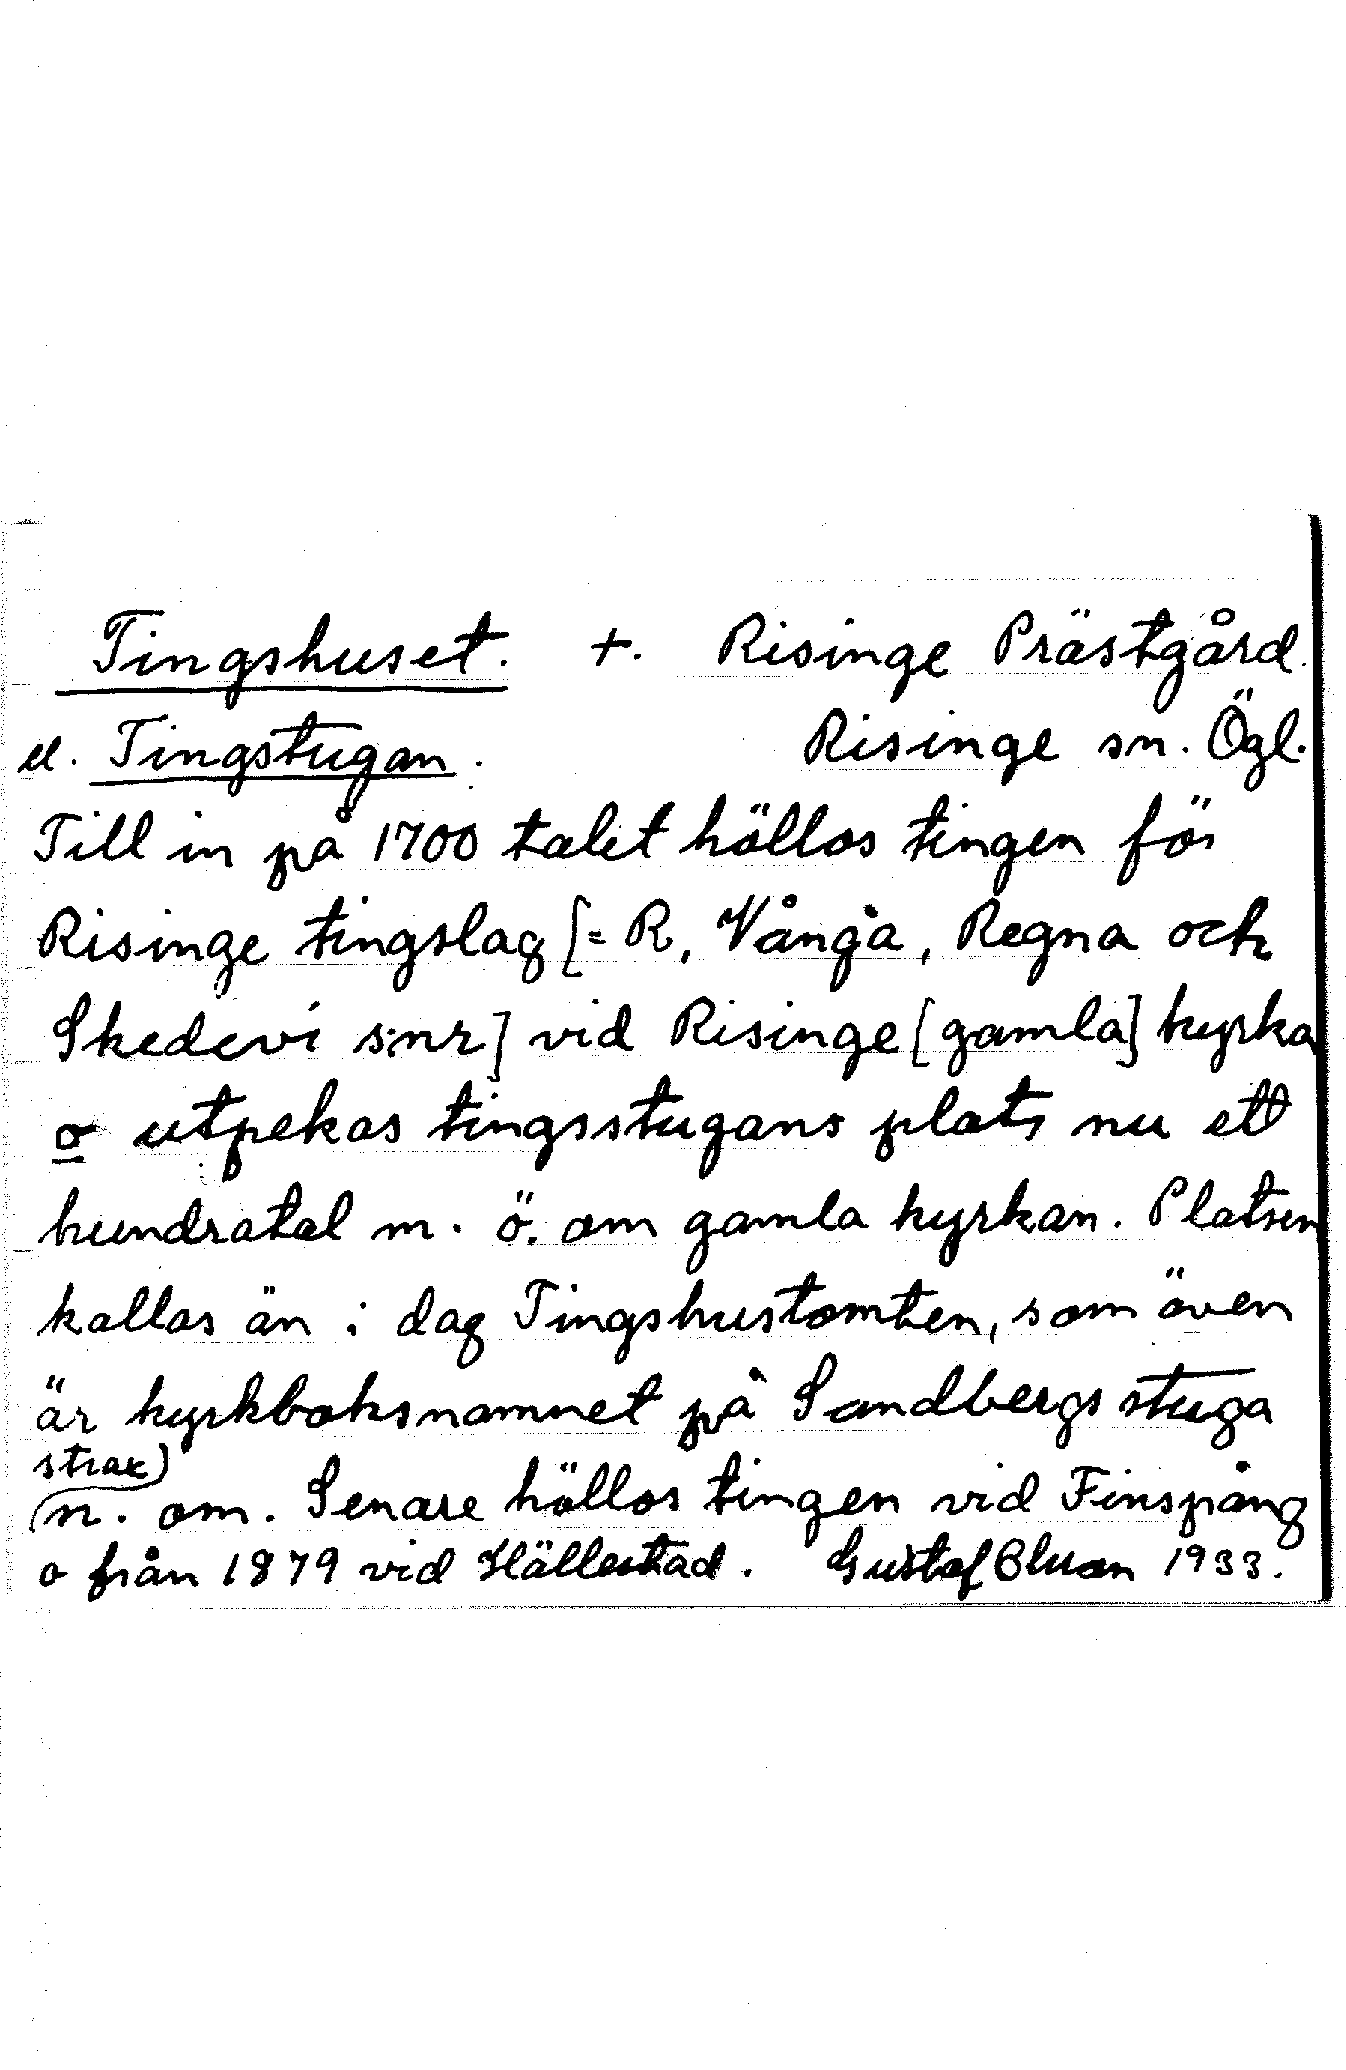 Tingshuset. +. Risinge Prästgård.
el. Tingstugan. Risinge sn. Ögl.
Till in på 1700 talet höllos tingen för
Risinge tingslag [= R, Vånga, Regna och
Skedevi s:nr] vid Risinge [gamla] kyrka
o utpekas tingsstugans plats nu ett
hundratal m. ö. om gamla kyrkan. Platsen
kallas än i dag Tingshustomten, som även
är kyrkboksnamnet på Sandbergs stuga
strax)
(n. om. Senare höllos tingen vid Finspång
o från 1879 vid Hällestad. Gustaf 1933.